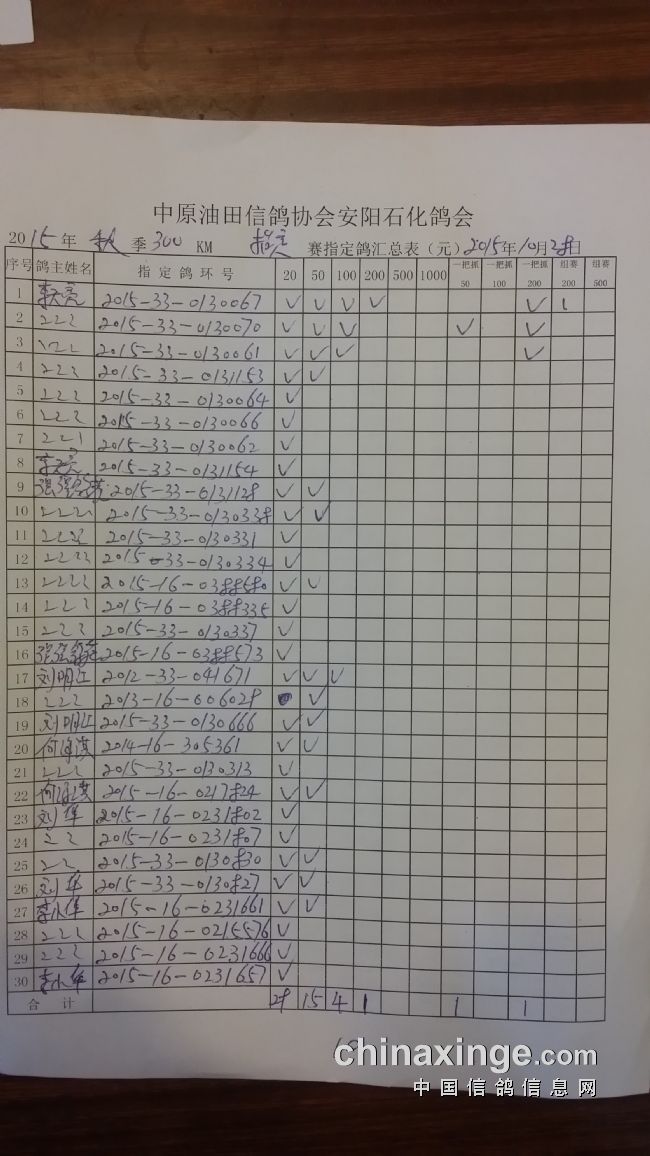 中原油田信鸽协会安阳石化鸽会
2015年 秋 季 300 KM 指定 赛指定鸽汇总表（元）2015年10月28日
序号 鸽主姓名 指定鸽环号 20 50 100 200 500 1000 一把抓 50 一把抓 100 一把抓 200 组赛 200 组赛 500
1 2015-33-0130067 √ √ √ √ √ 1
2 2015-33-0130070 √ √ √ √ √
3 2015-33-0130061 √ √ √ √
4 2015-33-0131153 √ √
5 2015-33-0130064 √
6 2015-33-0130066 √
7 2015-33-0130062 √
8 2015-33-0131154 √
9 2015-33-0131128 √ √
10 2015-33-0130338 √ √
11 2015-33-0130331 √
12 2015-33-0130334 √
13 2015-16-0388580 √ √
14 2015-16-0388335 √
15 2015-33-0130337 √
16 2015-16-0388573 √
17 刘明江 2012-33-041671 √ √ √
18 2013-16-606028 √
19 刘明江 2015-33-0130666 √ √
20 2014-16-305361 √ √
21 2015-33-0130313 √
22 2015-16-0217824 √ √
23 刘华 2015-16-0231802 √
24 2015-16-0231807 √
25 2015-33-0130830 √ √
26 刘华 2015-33-0130827 √ √
27 李小华 2015-16-0231661 √ √
28 2015-16-0215576 √
29 2015-16-0231666 √
30 李小华 2015-16-0231657 √
合计 28 15 4 1 1 1
chinaxinge.com
中国信鸽信息网